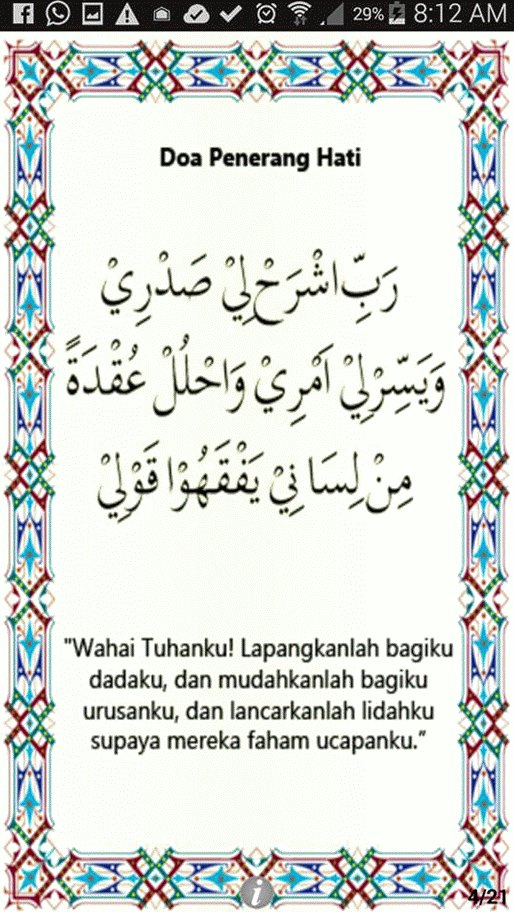 29% 8:12 AM
Doa Penerang Hati
رَبِّ اشْرَحْ لِيْ صَدْرِيْ
وَيَسِّرْلِيْ اَمْرِيْ وَاحْلُلْ عُقْدَةً
مِنْ لِسَانِيْ يَفْقَهُوْا قَوْلِيْ
"Wahai Tuhanku! Lapangkanlah bagiku
dadaku, dan mudahkanlah bagiku
urusanku, dan lancarkanlah lidahku
supaya mereka faham ucapanku.”
4/21